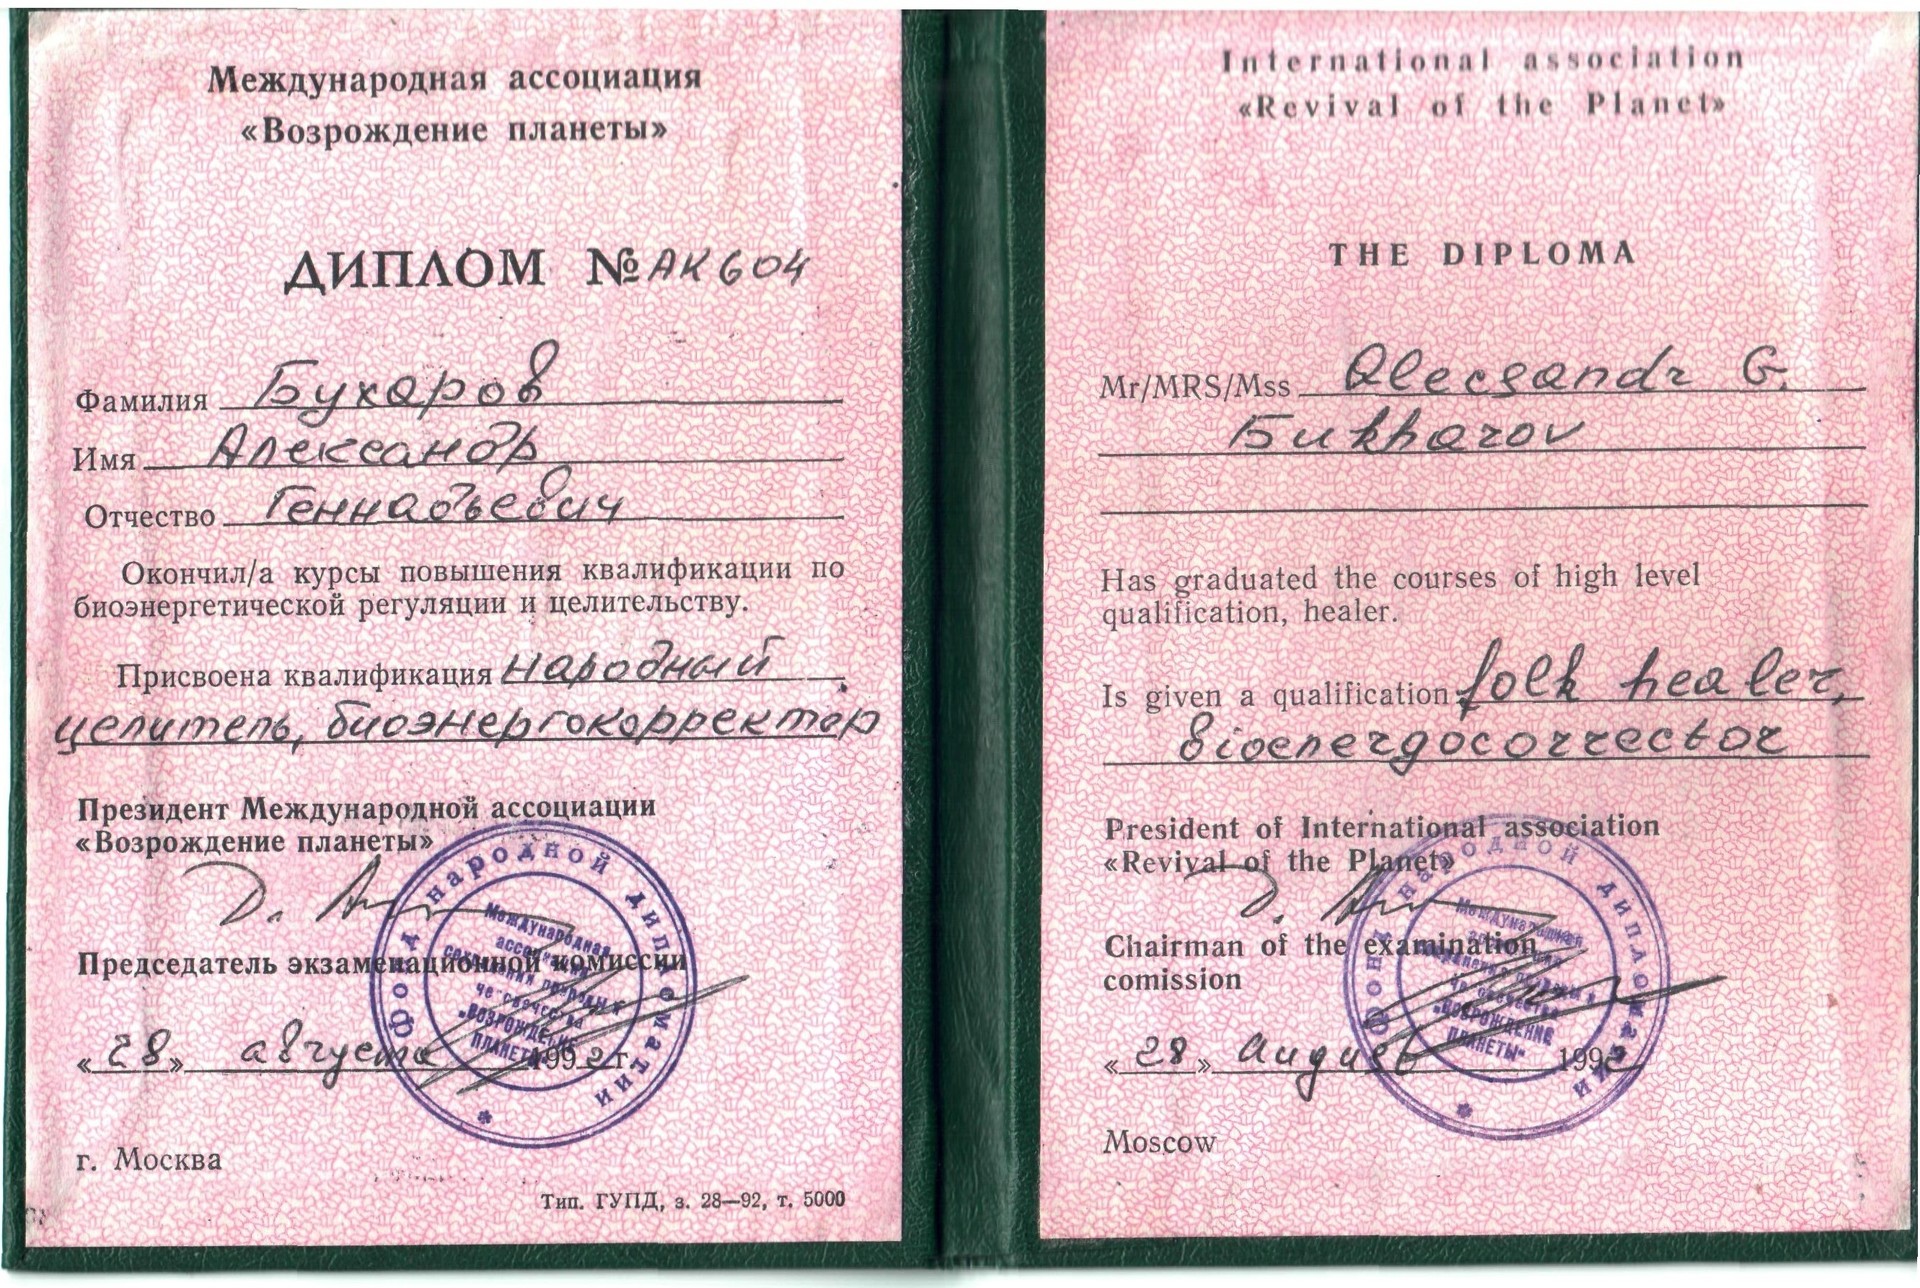 Международная ассоциация
«Возрождение планеты»
ДИПЛОМ № АК604
Фамилия Бухаров
Имя Александр
Отчество Геннадьевич
Окончил/а курсы повышения квалификации по
биоэнергетической регуляции и целительству.
Присвоена квалификация народный
целитель, биоэнергокорректор
Президент Международной ассоциации
«Возрождение планеты»
Председатель экзаменационной комиссии
«28» августа 1992 г.
г. Москва
Тип. ГУПД, з. 28—92, т. 5000
Фонд народной дипломатии
Международная
ассоциация
"ВОЗРОЖДЕНИЕ
ПЛАНЕТЫ"
International association
«Revival of the Planet»
THE DIPLOMA
Mr/MRS/Mss Alecsandr G.
Bukharov
Has graduated the courses of high level
qualification, healer.
Is given a qualification folk healer,
bioenergocorrector
President of International association
«Revival of the Planet»
Chairman of the examination
comission
«28» 1992
Moscow
Фонд народной дипломатии
Международная
"ВОЗРОЖДЕНИЕ
ПЛАНЕТЫ"